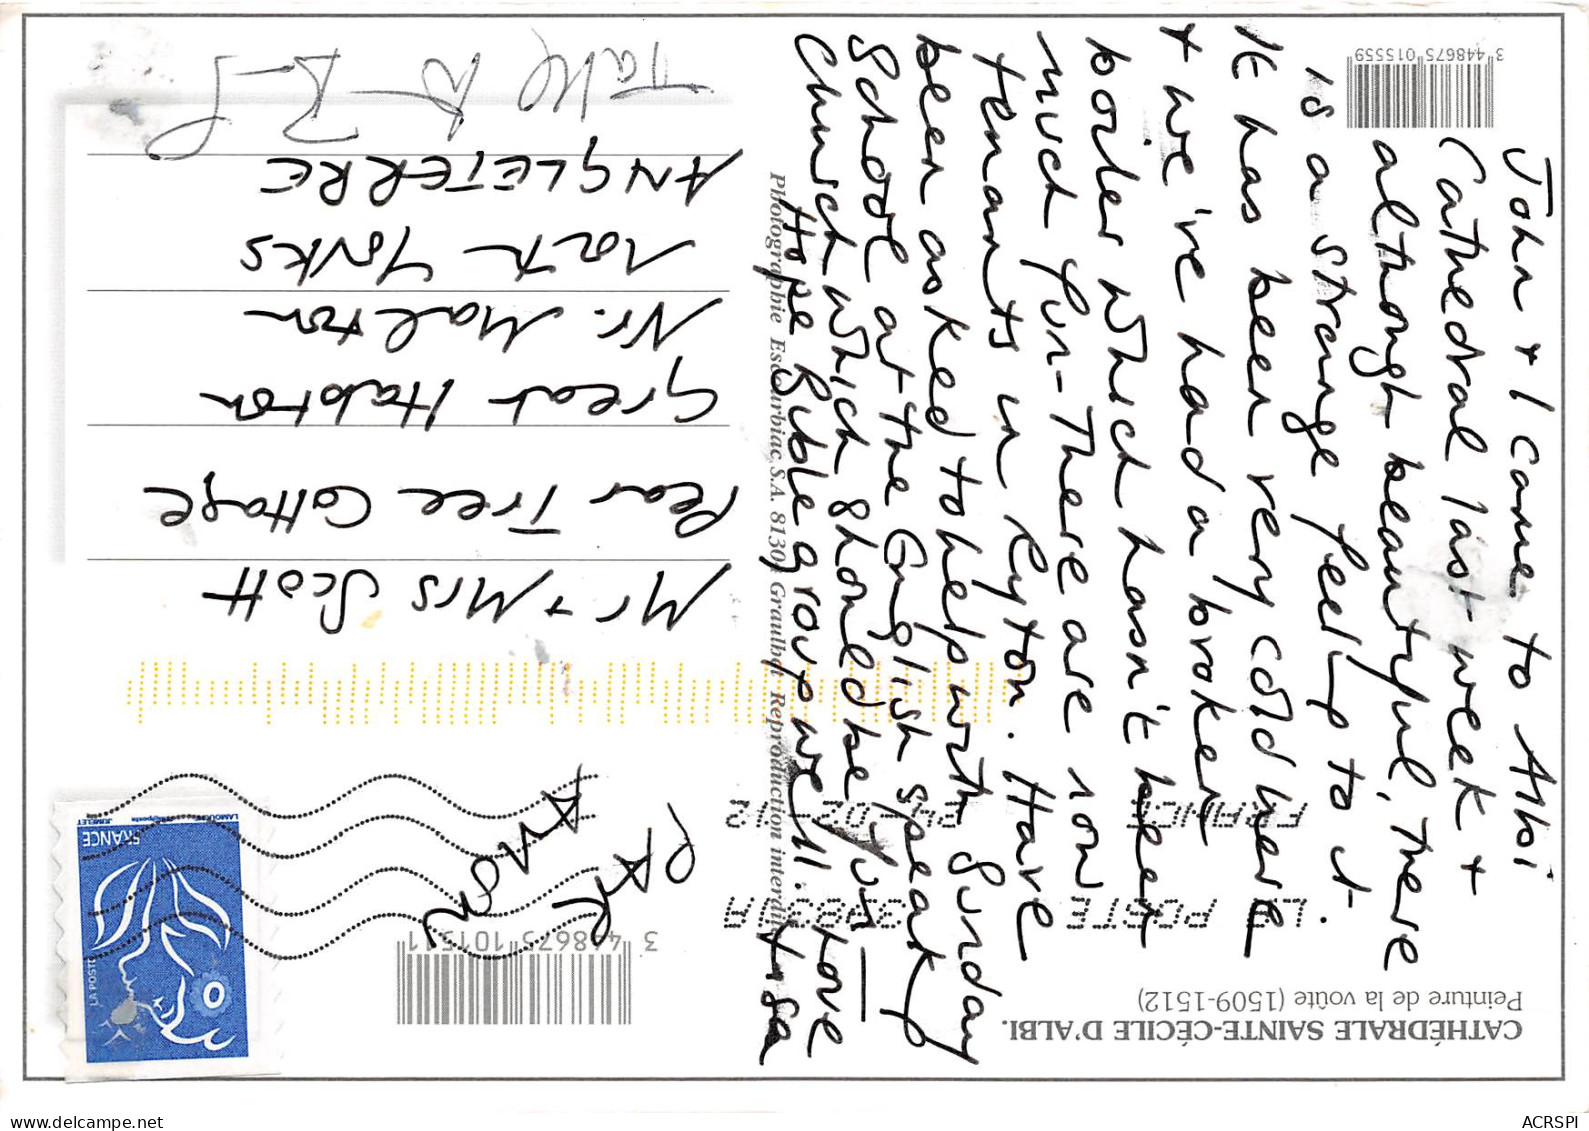 CATHÉDRALE SAINTE-CÉCILE D'ALBI.
Peinture de la voûte (1509-1512)
John + I came to Albi
Cathedral last week +
although beautiful, there
is a strange feeling to it.
It has been very cold here
+ we've had a broken
boiler which hasn't been
much fun - There are now
tenants in Ryton. Have
been asked to help with Sunday
School at the English speaking
Church which should be fun
Hope Bible group well. love
LA POSTE 37823A
FRANCE 02
Photographie Escourbiac, S.A. 8130 Graulhet Reproduction interdite
3 448675 101511
3 448675 015559
PAR
AVION
FRANCE
LA POSTE
Mr + Mrs Scott
Pear Tree Cottage
Great Habton
Nr. Malton
North Yorks
ANGLETERRE
ACRSPI